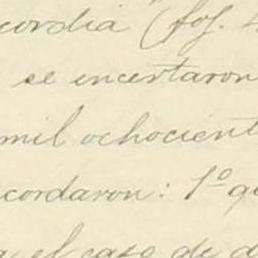 cordia (fof. 4
se encertaron
mil ochocient
cordaron: 1º qu
a el caso de d